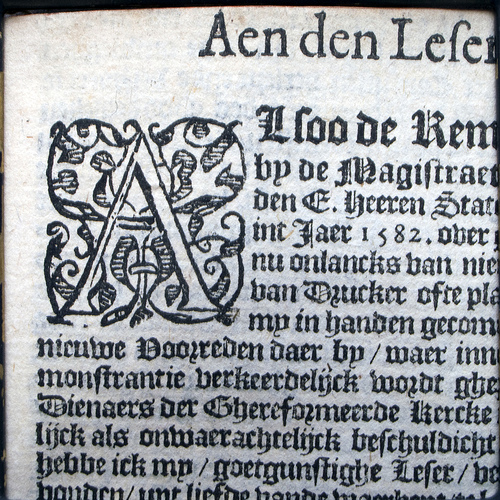 Aen den Leser
ALsoo de Rem
by de Magistraet
den E. Heeren Stat
int Jaer 1582. over
nu onlancks van nie
van Drucker ofte pl
my in handen gecom
nieuwe Voorreden daer by / waer inn
monstrantie verkeerdelijck wordt ghe
Dienaers der Ghereformeerde Kercke
lijck als onwaerachtelijck beschuldicht
hebbe ick my / goetgunstighe Leser / ve
vonden / uyt liefde vande